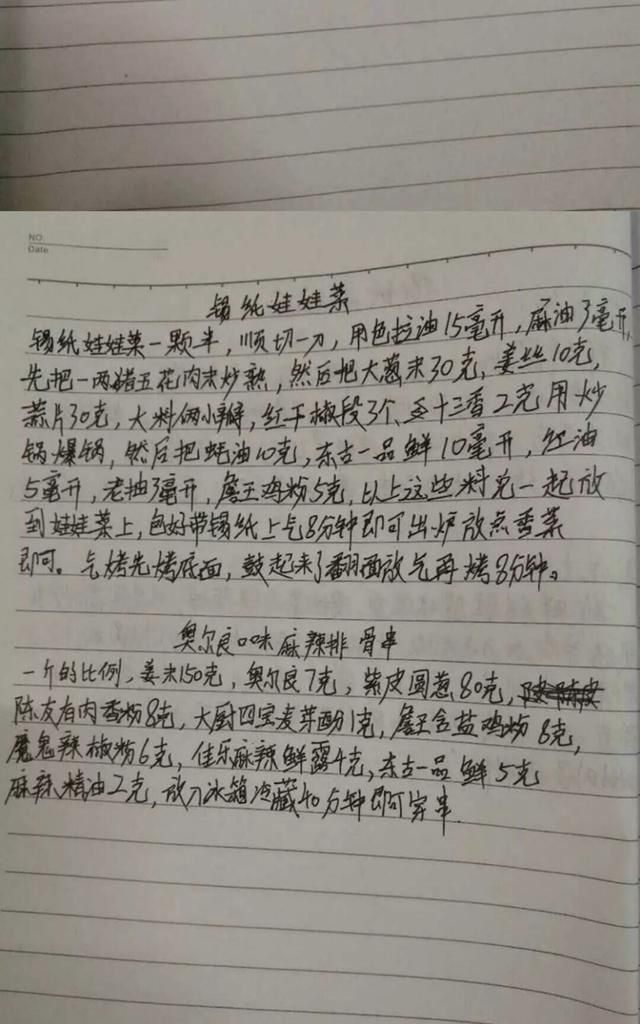 NO.
Date
锡纸娃娃菜
锡纸娃娃菜一颗半，顺切一刀，用色拉油15毫升，麻油3毫升，
先把一两猪五花肉末炒熟，然后把大葱末30克，姜丝10克，
蒜片30克，大料俩小瓣，红干椒段3个、王十三香2克用炒
锅爆锅，然后把蚝油10克，东古一品鲜10毫升，红油
5毫升，老抽3毫升，詹王鸡粉5克，以上这些料兑一起放
到娃娃菜上，包好带锡纸上气8分钟即可出炉放点香菜
即可。气烤先烤底面，鼓起来了翻面放气再烤8分钟。
奥尔良口味麻辣排骨串
一斤的比例，姜末150克，奥尔良7克，紫皮圆葱80克，
陈友有肉香粉8克，大厨四宝麦芽酚1克，詹王含盐鸡粉8克，
魔鬼辣椒粉6克，佳乐麻辣鲜露4克，东古一品鲜5克
麻辣精油2克，放入冰箱冷藏40分钟即可穿串.